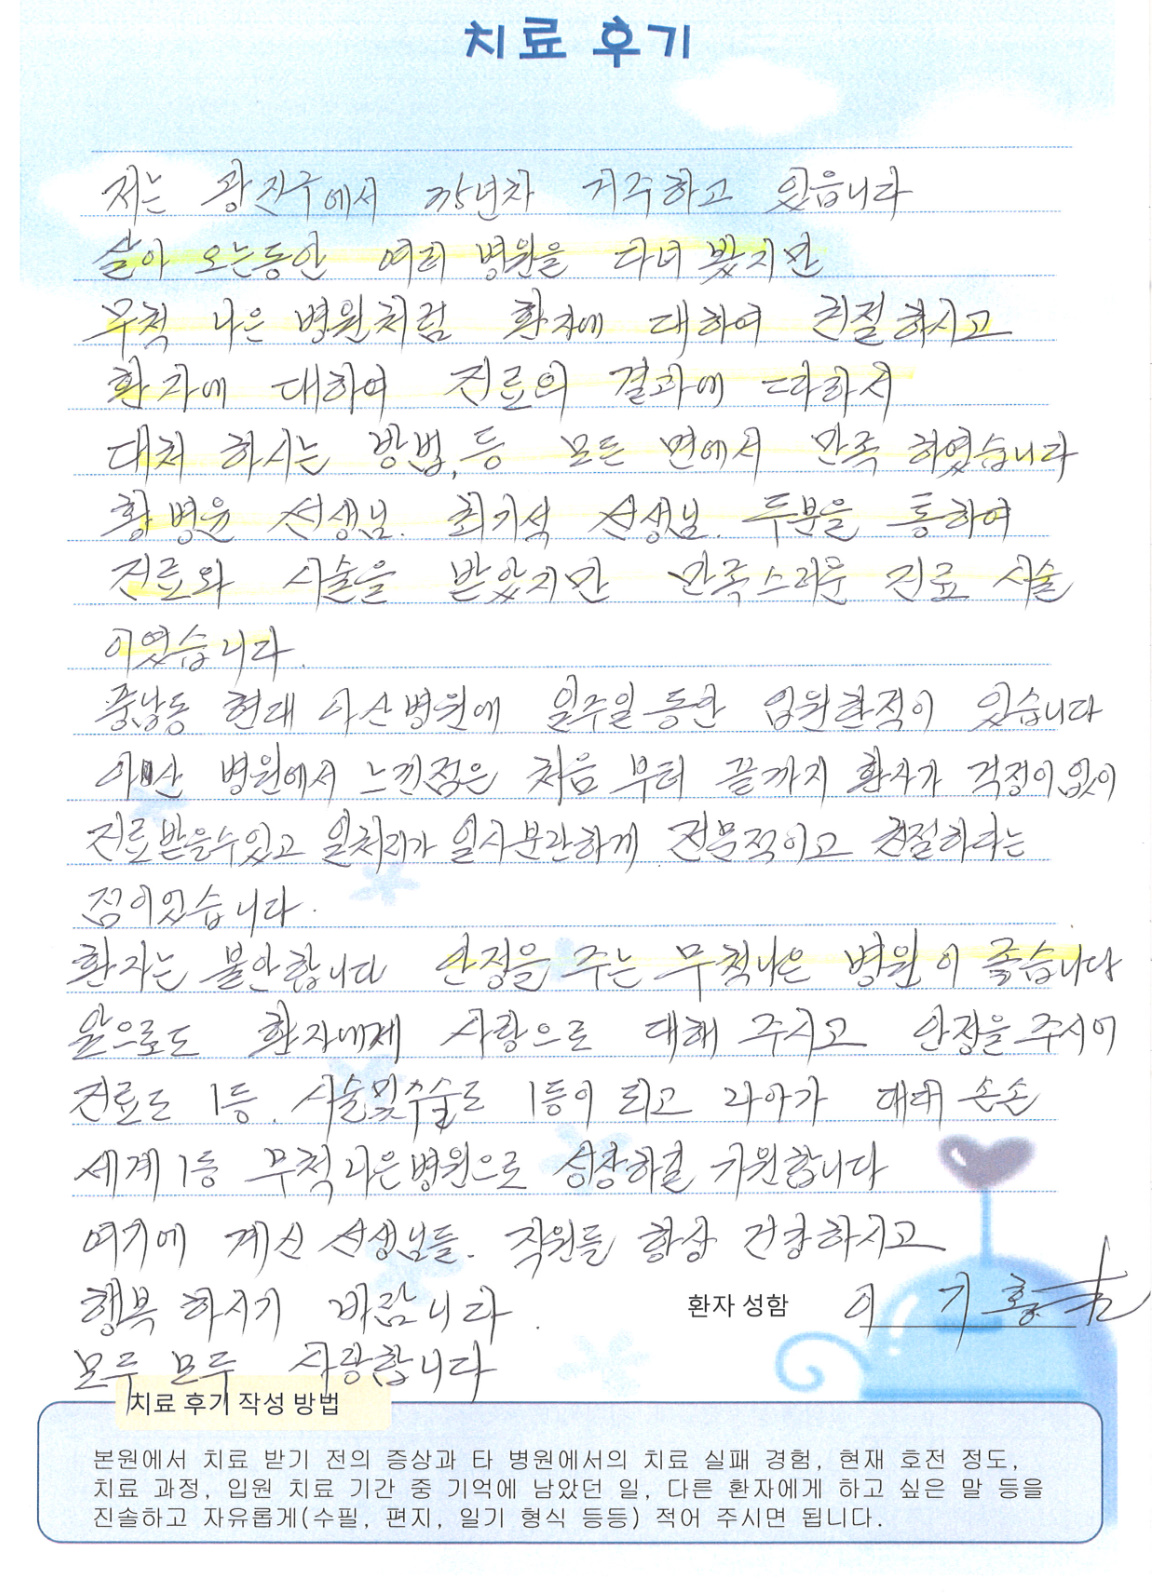 치료 후기
저는 광진구에서 35년차 거주하고 있습니다
살아 오는동안 여러 병원을 다녀 봤지만
무척 나은 병원처럼 환자에 대하여 친절하시고
환자에 대하여 진료의 결과에 따라서
대처 하시는 방법, 등 모든 면에서 만족 하였습니다
황병윤 선생님. 최기석 선생님. 두분을 통하여
진료와 시술을 받았지만 만족스러운 진료 시술
이였습니다.
풍납동 현대 아산병원에 일주일 동안 입원한적이 있습니다
아산 병원에서 느낀점은 처음 부터 끝까지 환자가 걱정이없이
진료받을수있고 일처리가 일사분란하게 전문적이고 친절하다는
점이있습니다.
환자는 불안합니다 안정을 주는 무척나은 병원이 좋습니다
앞으로도 환자에게 사랑으로 대해 주시고 안정을 주시어
진료도 1등. 시술및수술도 1등이 되고 나아가 대대 손손
세계1등 무척나은병원으로 성장하길 기원합니다
여기에 계신 선생님들. 직원들 항상 건강하시고
행복 하시기 바랍니다.
환자 성함 이 기 홍
모두 모두 사랑합니다
치료 후기 작성 방법
본원에서 치료 받기 전의 증상과 타 병원에서의 치료 실패 경험, 현재 호전 정도,
치료 과정, 입원 치료 기간 중 기억에 남았던 일, 다른 환자에게 하고 싶은 말 등을
진솔하고 자유롭게(수필, 편지, 일기 형식 등등) 적어 주시면 됩니다.